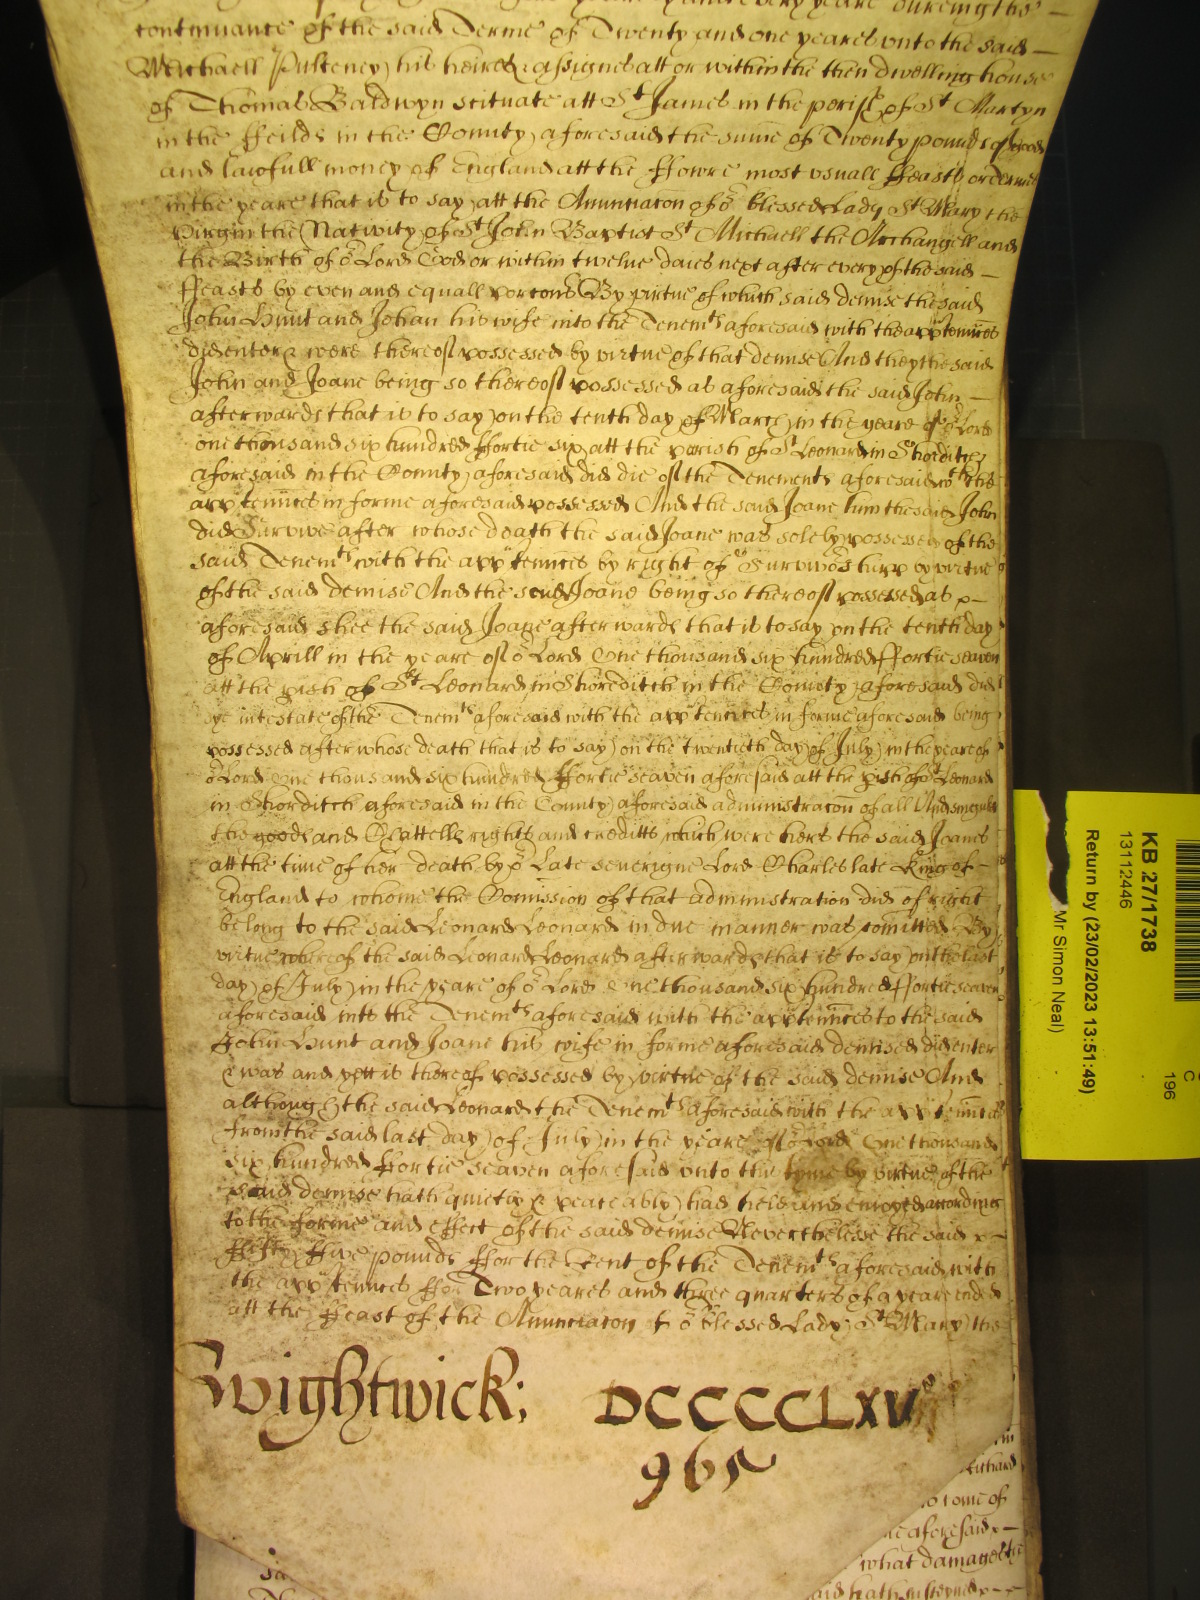 yeare dureing the –
continuance of the said Terme of Twenty and one yeares vnto the said –
Michaell Pulteney his heires & assignes att or within the then dwelling house
of Thomas Baldwyn scituate att St James in the parish of St Martyn
in the ffeilds in the County aforesaid the summe of Twenty pounds of good
and lawfull money of England att the ffowre most vsuall ffeasts or termes
in the yeare that is to say att the Annunciacon of or blessed Lady St Mary the
Virgin the Nativity of St John Baptist St Michaell the Archangell and
the Birth of or Lord God or within twelue daies next after every of the said –
ffeasts by even and equall porcons By virtue of which said demise the said
John Hunt and Johan his wife into the Tenemts aforesaid with the apptennces
did enter & were thereof possessed by virtue of that demise And they the said
John and Joane being so thereof possessed as aforesaid the said John –
afterwards that is to say on the tenth day of March in the yeare of or Lord
one thousand six hundred ffortie six att the parish of St Leonard in Shorditch
aforesaid in the County aforesaid did die of the Tenements aforesaid wth the
apptennces in forme aforesaid possessed And the said Joane him the said John
did Survive after whose death the said Joane was solely possessed of the
said Tenemts with the apptennces by right of Survivorshipp by virtue
of the said demise And the said Joane being so thereof possessed as –
aforesaid shee the said Joane afterwards that is to say on the tenth day
of Aprill in the yeare of or Lord One thousand six hundred ffortie seaven
att the pish of St Leonard in Shoreditch in the County aforesaid did
dye intestate of the Tenemts aforesaid with the apptennces in forme aforesaid being
possessed after whose death that is to say on the twentieth day of July in the yeare of
or Lord One thousand six hundred ffortie seaven aforesaid att the pish of St Leonard
in Shorditch aforesaid in the County aforesaid administracon of all And singuler
the goods and Chattells rights and creditts which were hers the said Joanes
att the time of her death by or Late Sovereigne Lord Charles late King of –
England to whome the Comission of that administration did of right
belong to the said Leonard Leonard in due manner was comitted By
virtue whereof the said Leonard Leonard afterwards that is to say on the last
day of July in the yeare of or Lord One thousand six hundred ffortie seaven
aforesaid into the Tenemts aforesaid with the apptennces to the said
John Hunt and Joane his wife in forme aforesaid demised did enter
& was and yett is thereof possessed by virtue of the said demise And
although the said Leonard the Tenemts aforesaid with the apptennces
from the said last day of July in the yeare of or Lord One thousand
six hundred ffortie seaven aforesaid vnto this tyme by virtue of the
said demise hath quietly & peaceably had held and enioyed according
to the forme and effect of the said demise Neverthelesse the said –
ffifty ffive pounds ffor the Rent of the Tenemts aforesaid with
the apptennces ffor Two yeares and three quarters of a yeare ended
att the ffeast of the Annunciacon of or blessed Lady St Mary the
Wightwick; DCCCCCLXVo
965
Richard
to some of
aforesaid –
what damage
said hath susteyned
KB 27/1738
13112446
Return by (23/02/2023 13:51:49)
Mr Simon Neal)
C
196